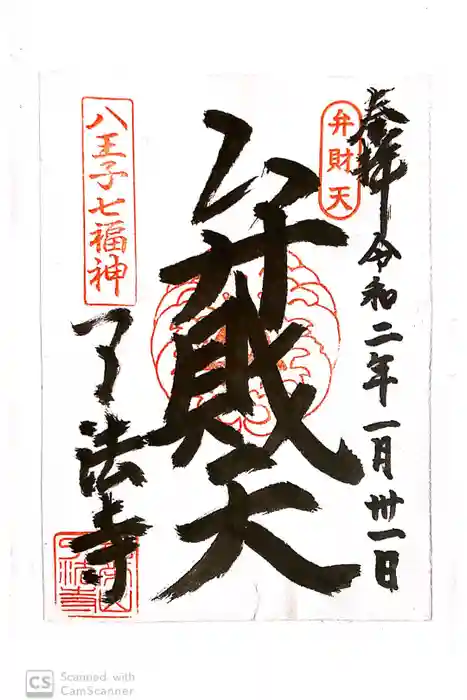 奉拝
令和二年一月卅一日
弁財天
弁財天
八王子七福神
了法寺
CS Scanned with
CamScanner